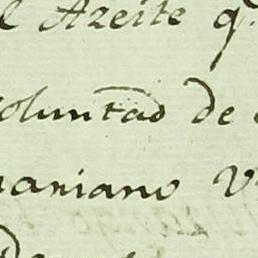 l Azeite q.
oluntad de
aniano V